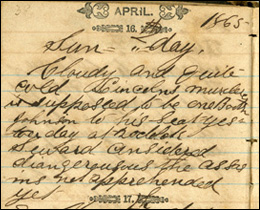 APRIL.
16. th 1865-
Sun - Day.
Cloudy and quite
cold Lincolns murderer
is supposed to be one Booth
Johnson to his seat yes-
terday at 10 oclock
Seward considered
dangerguous the assas
ins not apprehended
yet
17.